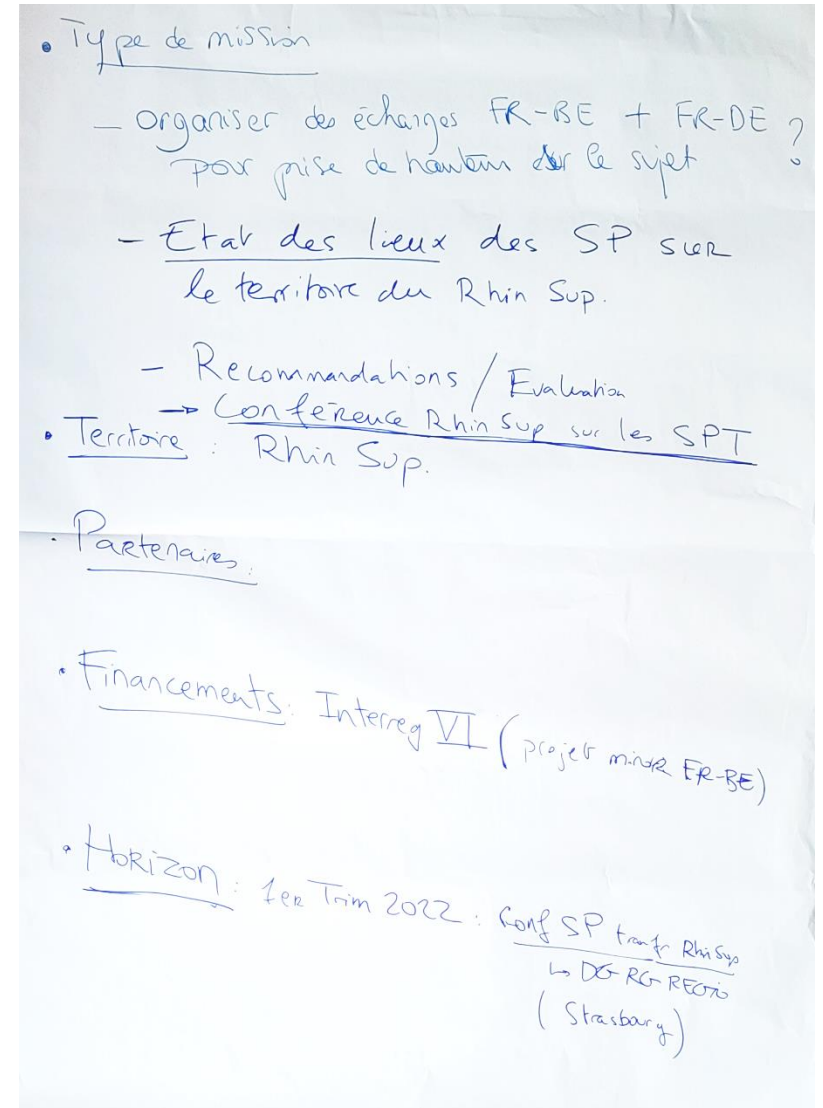 • Type de mission
- Organiser des échanges FR-BE + FR-DE ?
pour prise de hauteur sur le sujet
- Etat des lieux des SP sur
le territoire du Rhin Sup.
- Recommandations / Evaluation
→ Conférence Rhin Sup sur les SPT
• Territoire : Rhin Sup.
• Partenaires :
• Financements : Interreg VI (projet miroir FR-BE)
• Horizon : 1er Trim 2022 : Conf SP transfr Rhin Sup
↳ DG REGIO
(Strasbourg)